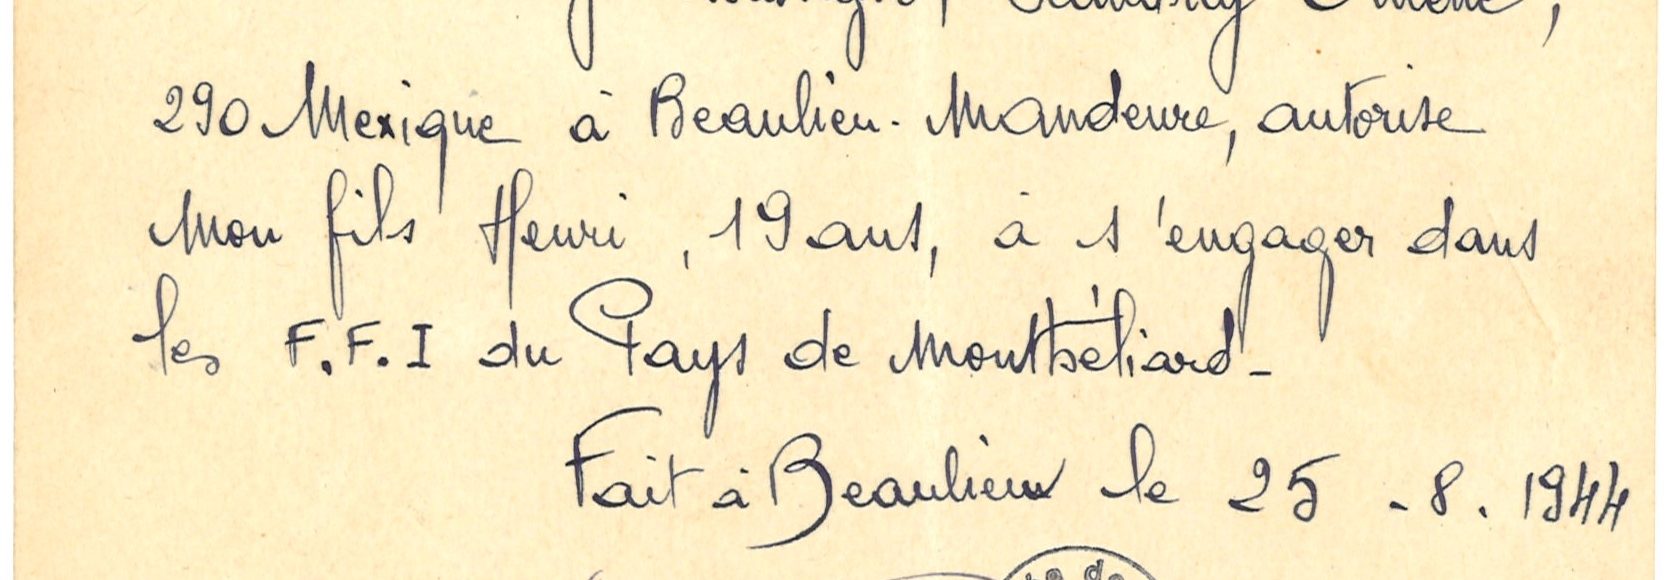 290 Mexique à Beaulieu-Mandeure, autorise
mon fils Henri, 19 ans, à s'engager dans
les F.F.I du Pays de Montbéliard-
Fait à Beaulieu le 25 -8. 1944